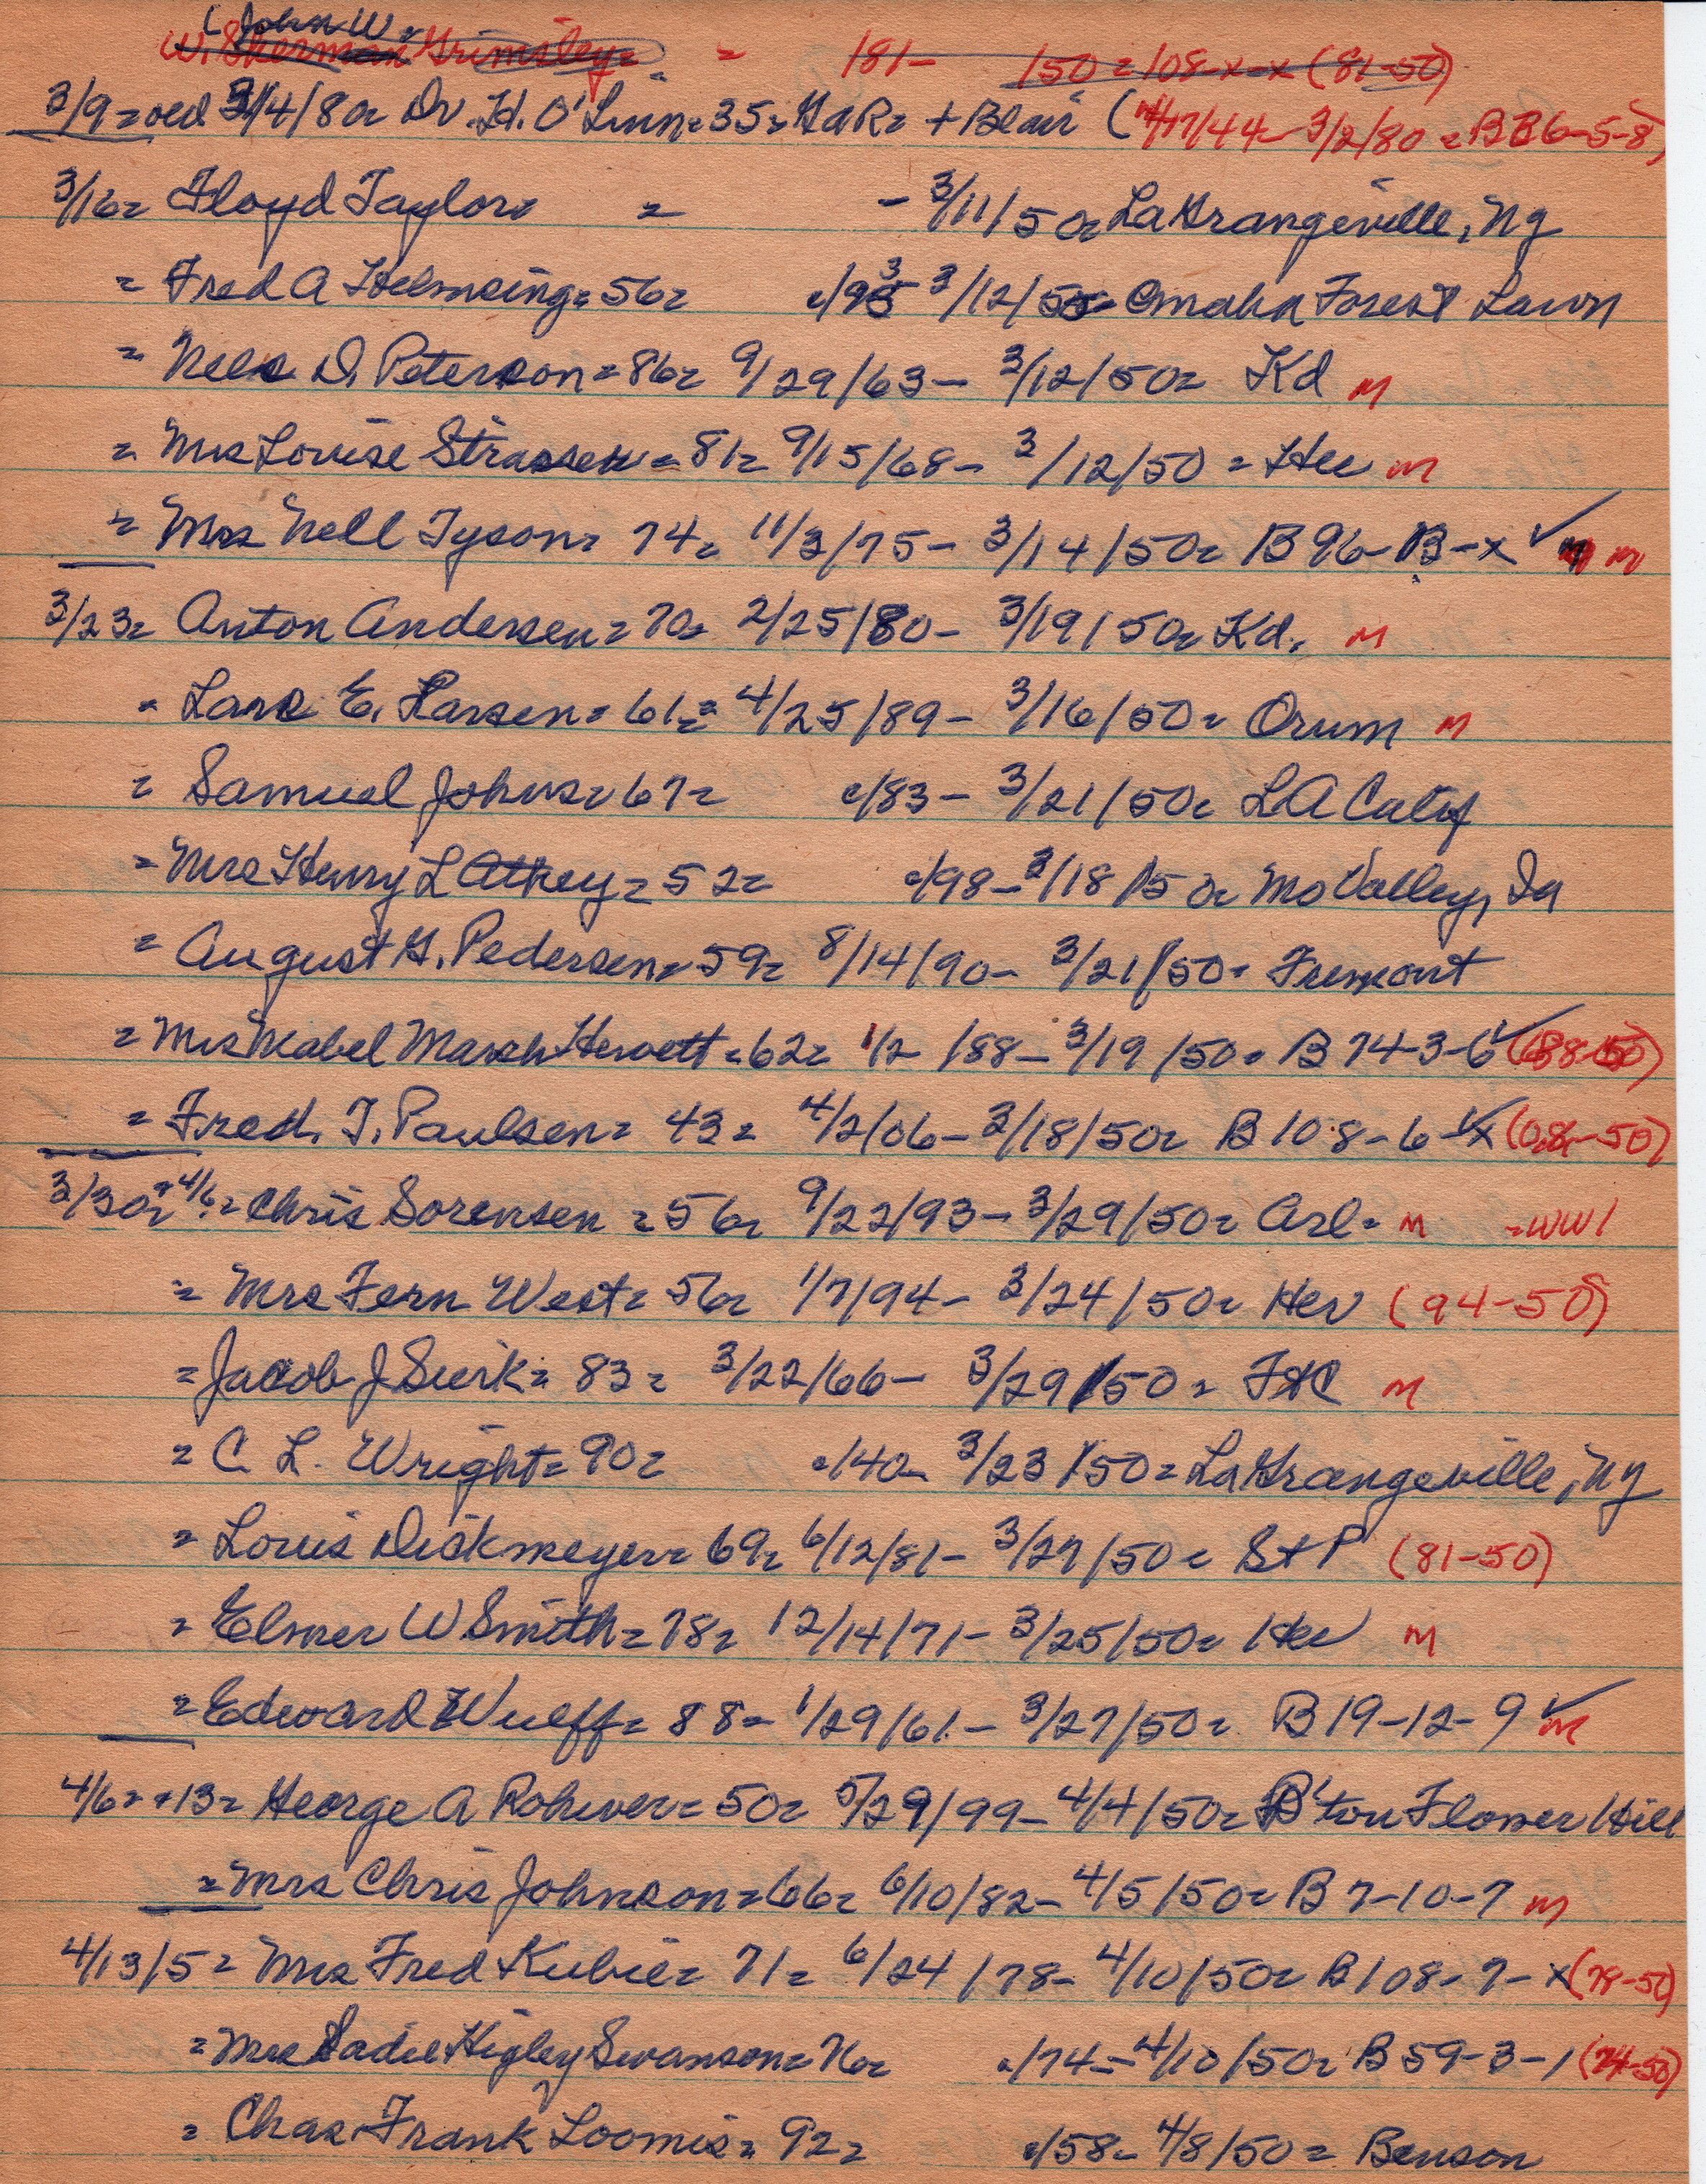 (John W.
W. Sherman Grimsley = = 181- 150 = 108-x-x (81-50)
3/9 = old 3/4/80 = Dr. H. O'Linn = 35 = GAR = + Blair (4/17/44 - 3/2/80 = BB6-5-8)
3/16 = Floyd Taylor = = - 3/11/50 = LaGrangeville, Ny
= Fred A Helmsing = 56 = c/93 3/12/50 = Omaha Forest Lawn
= Nels D. Peterson = 86 = 9/29/63 - 3/12/50 = Kd M
= Mrs Louise Strassen = 81 = 9/15/68 - 3/12/50 = Her M
= Mrs Nell Tyson = 74 = 11/3/75 - 3/14/50 = B 96-B-x ✓ M
3/23 = Anton Andersen = 70 = 2/25/80 - 3/19/50 = Kd. M
= Lars E. Larsen = 61 = 4/25/89 - 3/16/50 = Orum M
= Samuel Johns = 67 = c/83 - 3/21/50 = LA Calif
= Mrs Henry L Athey = 52 = c/98 - 3/18/50 = Mo Valley, Ia
= August G. Pedersen = 59 = 8/14/90 - 3/21/50 = Fremont
= Mrs Mabel Marsh Hewett = 62 = 1/2/88 - 3/19/50 = B 74-3-6 ✓ (88-50)
= Fred. T. Paulsen = 43 = 4/2/06 - 3/18/50 = B 108-6-x ✓ (06-50)
3/30 = + 4/6 = Chris Sorensen = 56 = 9/22/93 - 3/29/50 = Arl = M = WW1
= Mrs Fern West = 56 = 1/7/94 - 3/24/50 = Her (94-50)
= Jacob J Sierk = 83 = 3/22/66 - 3/29/50 = FtC M
= C. L. Wright = 90 = c/40 - 3/23/50 = LaGrangeville, Ny
= Louis Dickmeyer = 69 = 6/12/81 - 3/27/50 = St P (81-50)
= Elmer W Smith = 78 = 12/14/71 - 3/25/50 = Her M
= Edward Wulff = 88 = 1/29/61 - 3/27/50 = B 19-12-9 ✓ M
4/6 = + 13 = George A Rohwer = 50 = 5/29/99 - 4/4/50 = B'ton Flower Hill
= Mrs Chris Johnson = 66 = 6/10/82 - 4/5/50 = B 7-10-7 M
4/13/5 = Mrs Fred Kubie = 71 = 6/24/78 - 4/10/50 = B 108-7-x (78-50)
= Mrs Sadie Higley Swanson = 76 = c/74 - 4/10/50 = B 59-3-1 (74-50)
= Chas Frank Loomis = 92 = c/58 - 4/8/50 = Benson